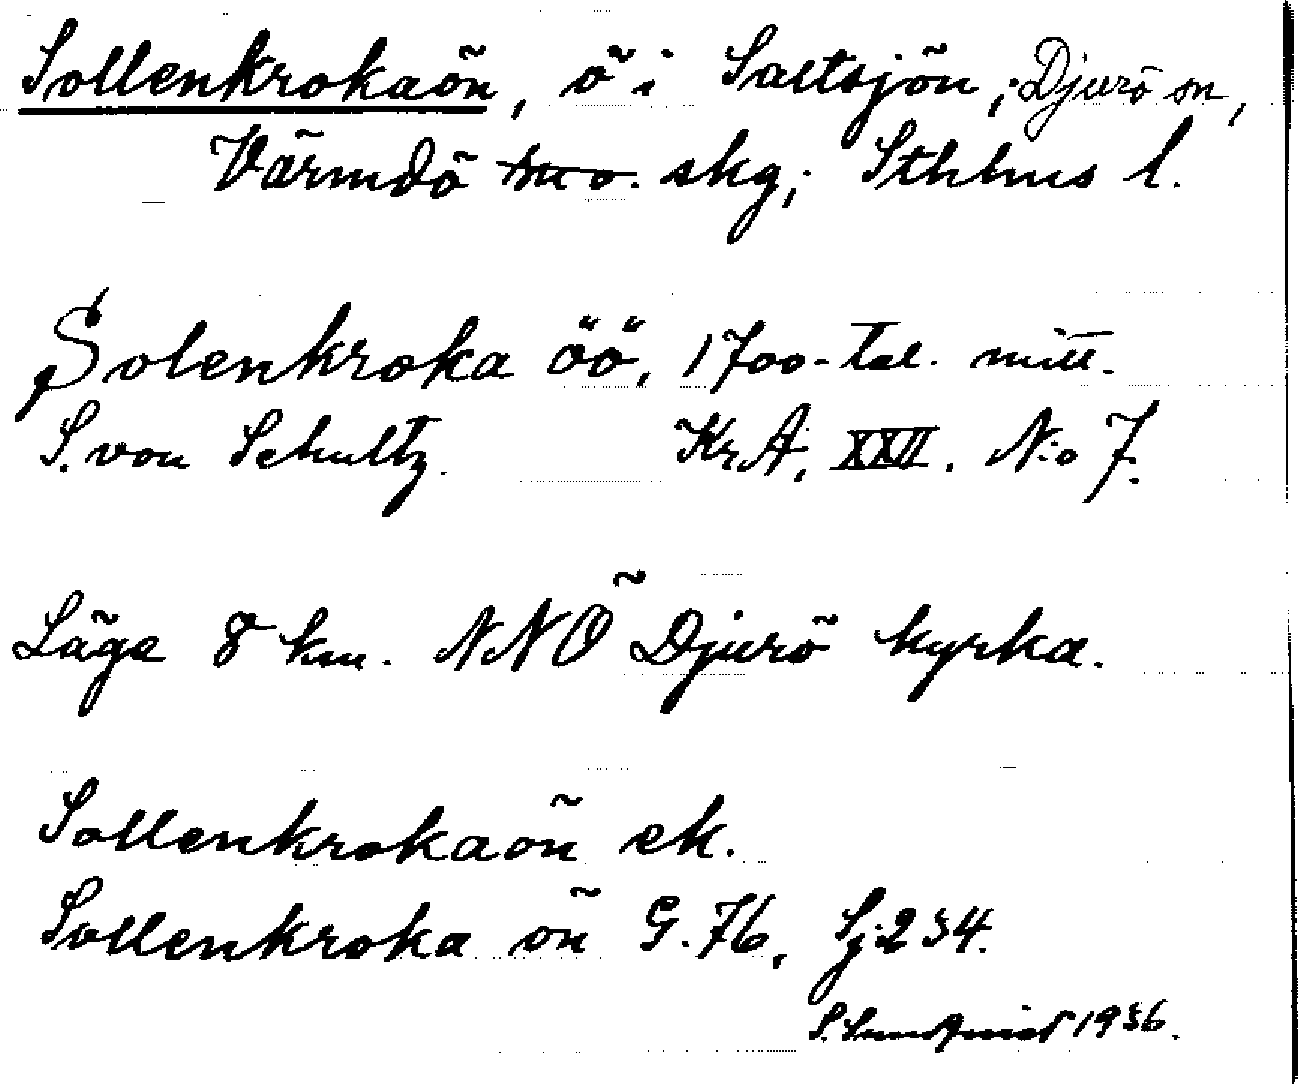 Sollenkrokaön, ö i Saltsjön, Djurö sn,
Värmdö skg; Sthlms l.
Solenkroka öö, 1700-tal. mitt.
S. von Schultz. KrA, XXII. N:o 7.
Läge 8 km. NNÖ Djurö kyrka.
Sollenkrokaön ek.
Sollenkroka ön G.76, Sj.234.
S. Lundquist 1936.